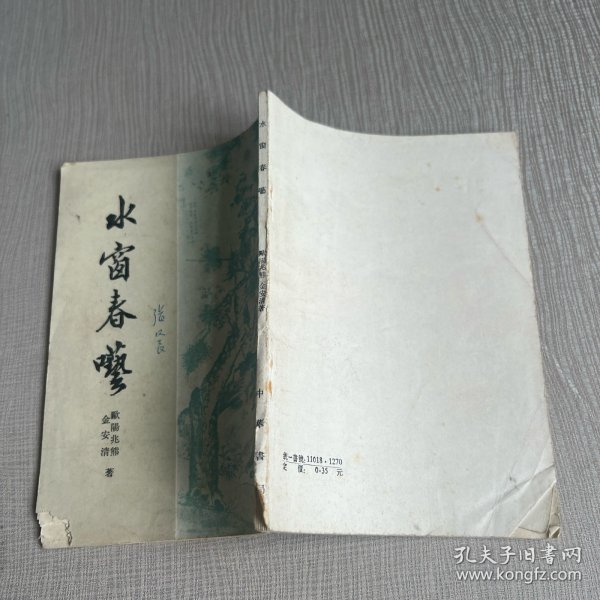 水窗春囈
歐陽兆熊
金安清 著
水窗春囈
歐陽兆熊 金安清著
中華書局
統一書號:11018·1270
定價: 0.35 元
孔夫子旧书网
www.kongfz.com